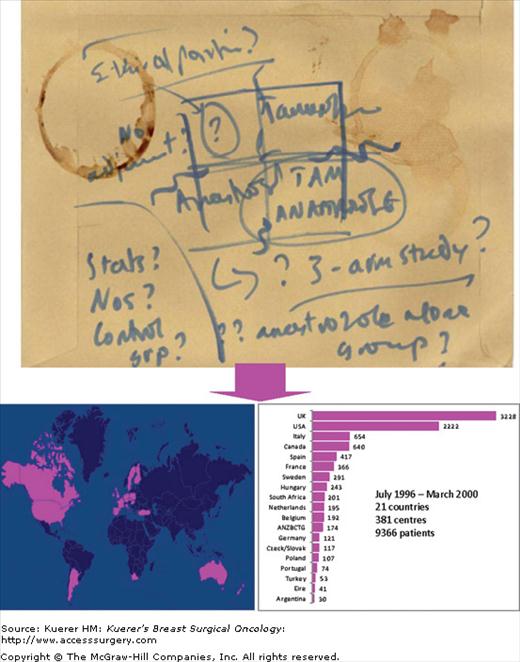 Ethical partic?
No
adjuvant?
?
Tamoxifen
Anastrozole
TAM
ANASTROZOLE
Stats?
Nos?
Control
grp?
? 3-arm study?
?? anastrozole alone
group?
UK 3228
USA 2222
Italy 654
Canada 640
Spain 417
France 366
Sweden 291
Hungary 243
South Africa 201
Netherlands 195
Belgium 192
ANZBCTG 174
Germany 121
Czeck/Slovak 117
Poland 107
Portugal 74
Turkey 53
Eire 41
Argentina 30
July 1996 – March 2000
21 countries
381 centres
9366 patients
Source: Kuerer HM: Kuerer's Breast Surgical Oncology:
http://www.accesssurgery.com
Copyright © The McGraw-Hill Companies, Inc. All rights reserved.